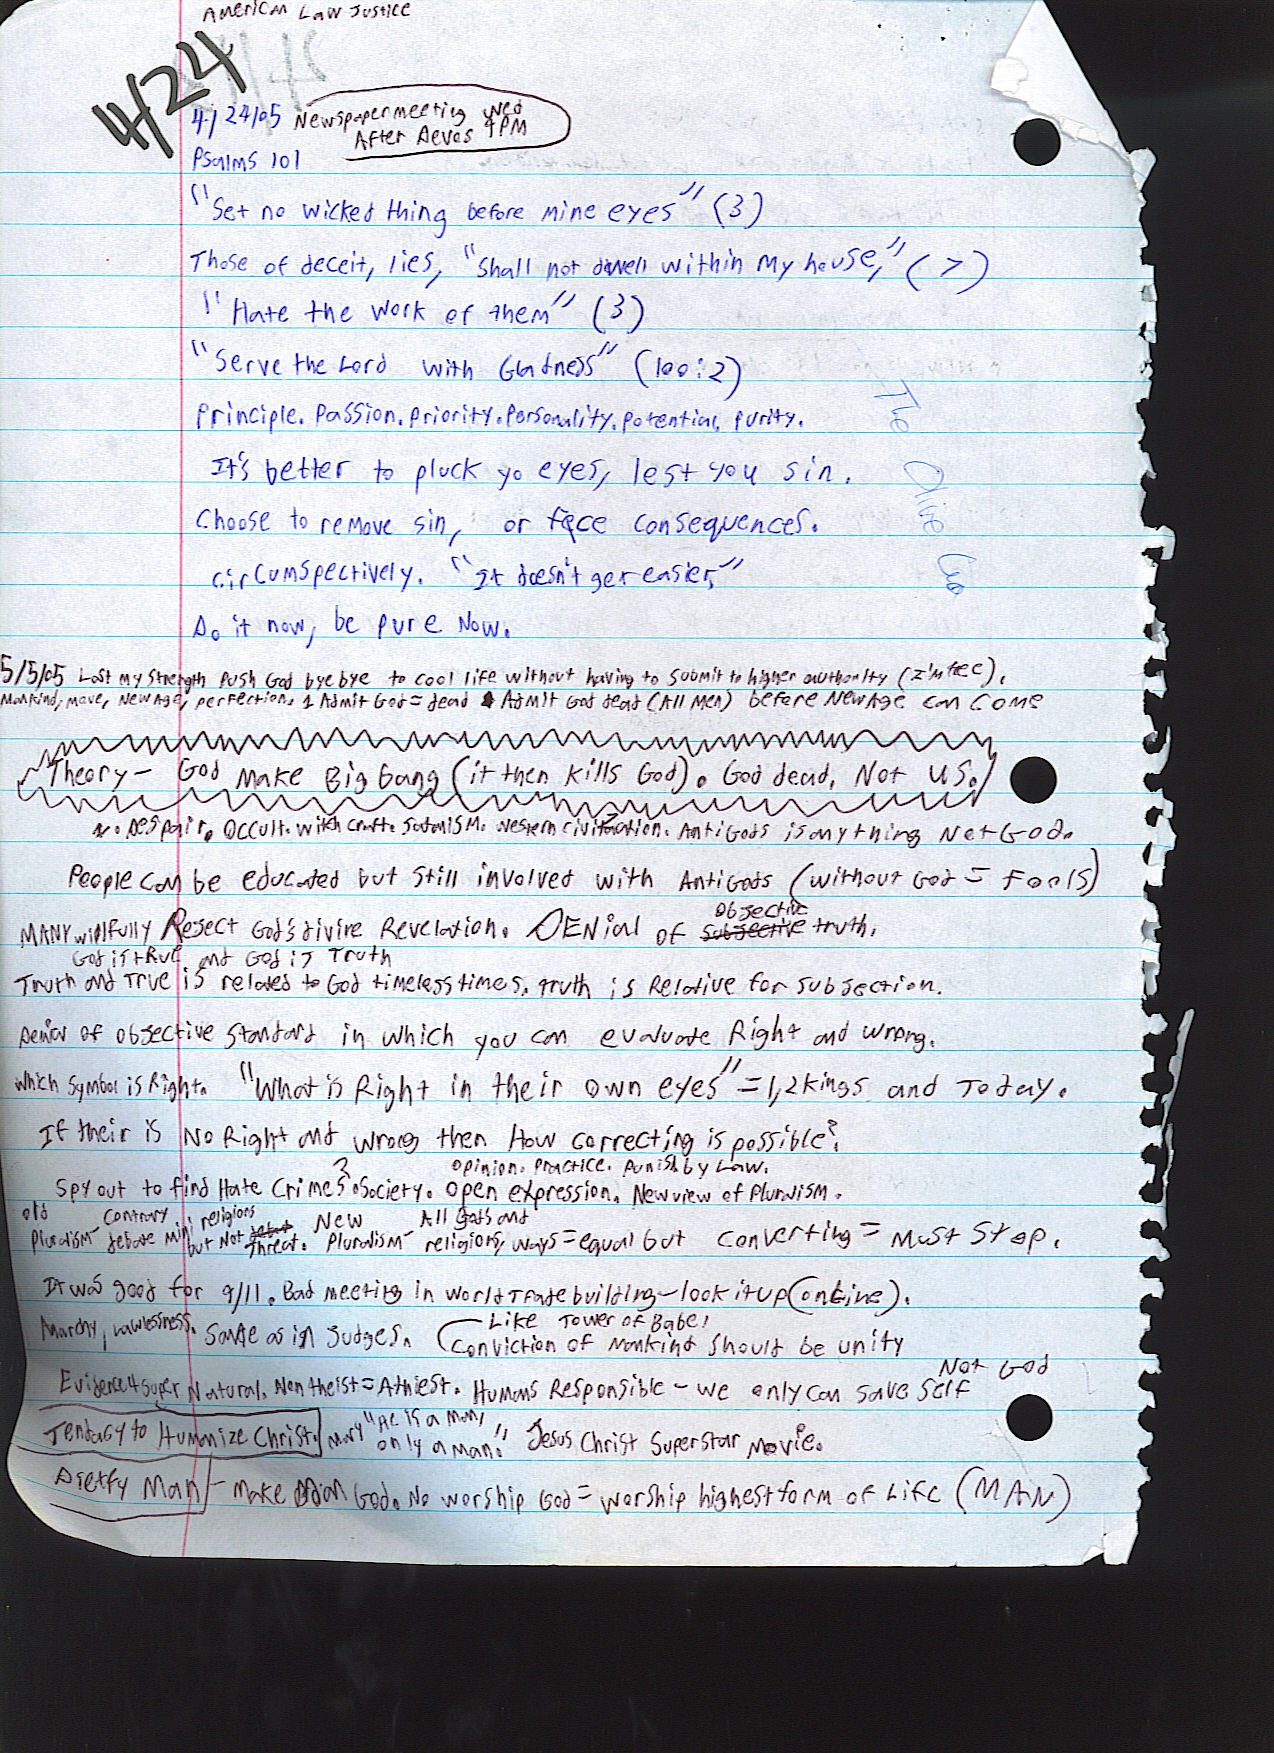 American Law Justice
4/24
4/24/05 Newspaper meeting Wed
After Devos 4PM
Psalms 101
"Set no wicked thing before mine eyes" (3)
Those of deceit, lies, "shall not dwell within my house," (7)
"Hate the work of them" (3)
"Serve the Lord with Gladness" (100:2)
Principle. Passion. Priority. Personality. Potential. Purity.
It's better to pluck yo eyes, lest you sin.
Choose to remove sin, or face consequences.
circumspectively. "It doesn't get easier,"
Do it now, be pure Now.
The Olive
5/5/05 Lost my strength Push God bye bye to cool life without having to submit to higher authority (I'm free).
Mankind, move, New Age, perfection. 1 Admit God = dead Admit God dead (All Men) before New Age can come
Theory - God make Big Bang (it then kills God). God dead, Not US.
Despair. Occult. Witchcraft. Satanism. Western Civilization. AntiGods is anything Not God.
People can be educated but still involved with AntiGods (without God = Fools)
Objective
MANY willfully Reject God's divine Revelation. DENial of subjective truth.
God is true and God is Truth
Truth and True is related to God timeless times, truth is Relative for subjection.
Denial of objective standard in which you can evaluate Right and wrong.
which symbol is Right. "What is Right in their own eyes" = 1,2 Kings and Today.
If their is No Right and wrong then How correcting is possible?
Opinion. Practice. Punish by Law.
Spy out to find Hate Crimes? Society. Open expression. New view of Pluralism.
old contrary religions New All Gods and
Pluralism - debate mini but Not threat. Pluralism - religions, ways = equal but converting = Must Stop.
It was good for 9/11. Bad meeting in World Trade building - look it up (online).
Like Tower of Babel
Anarchy, Lawlessness. Same as in Judges. Conviction of Mankind should be unity
Not God
Evidence 4 Super Natural. Non theist = Athiest. Humans Responsible - we only can save self
Tendasy to Humanize Christ. Mary "He is a man, only a man." Jesus Christ Superstar Movie.
Dietfy Man - Make God. No worship God = worship highest form of Life (MAN)